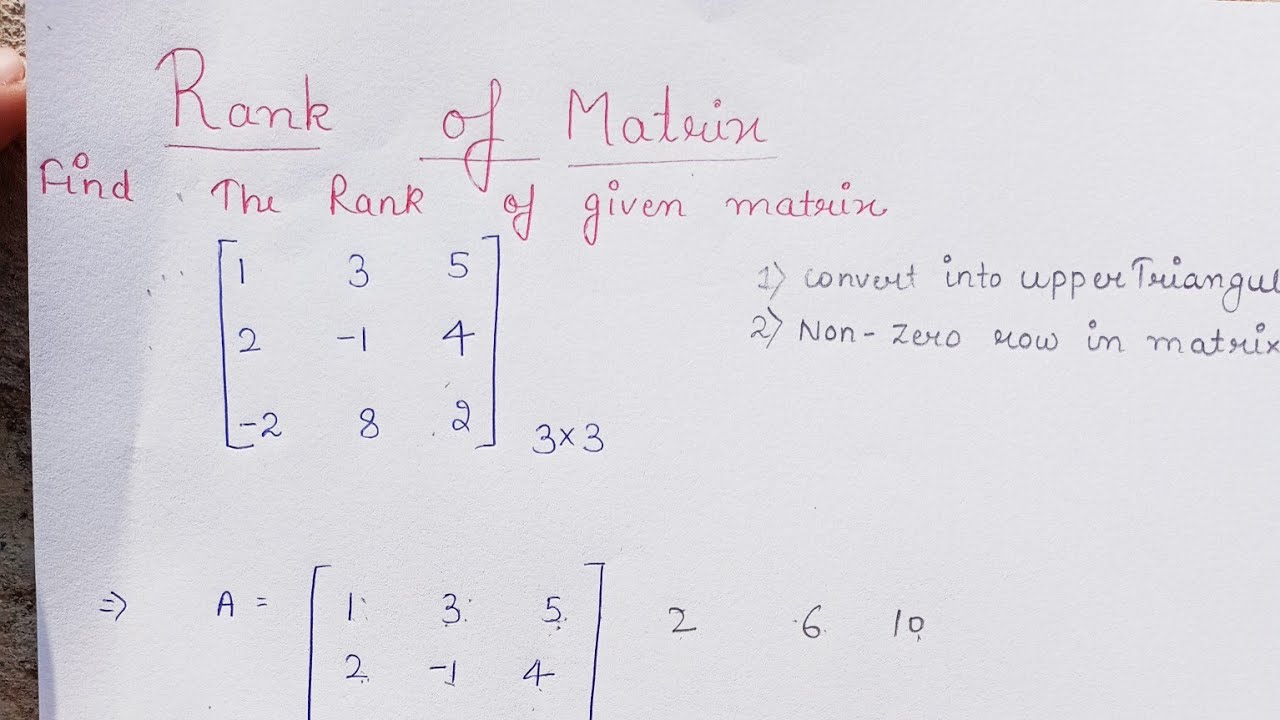 Rank of Matrix
Find The Rank of given matrix
1 3 5
2 -1 4
-2 8 2
3×3
1) convert into upper Triangul
2) Non-Zero row in matrix
⇒ A = 1 3 5 2 6 10
2 -1 4